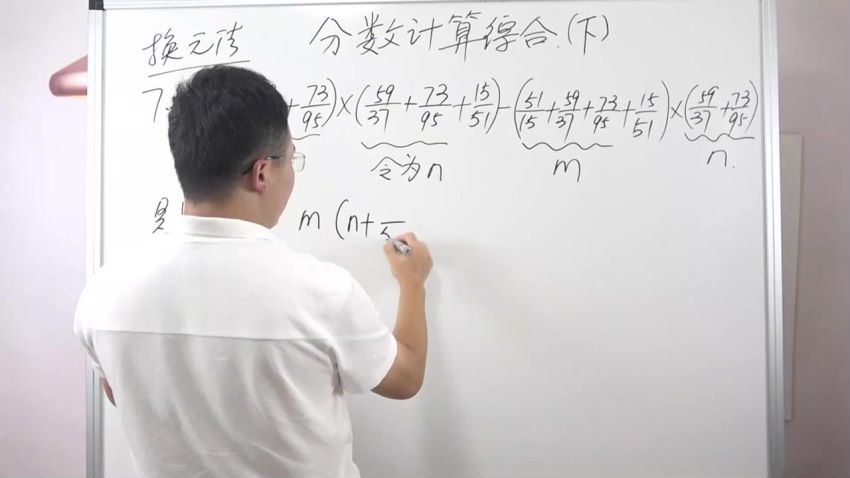 换元法 分数计算综合.(下)
7. + 73/95) × (59/37 + 73/95 + 15/51) - (51/15 + 59/37 + 73/95 + 15/51) × (59/37 + 73/95)
令为n m n.
m (n+